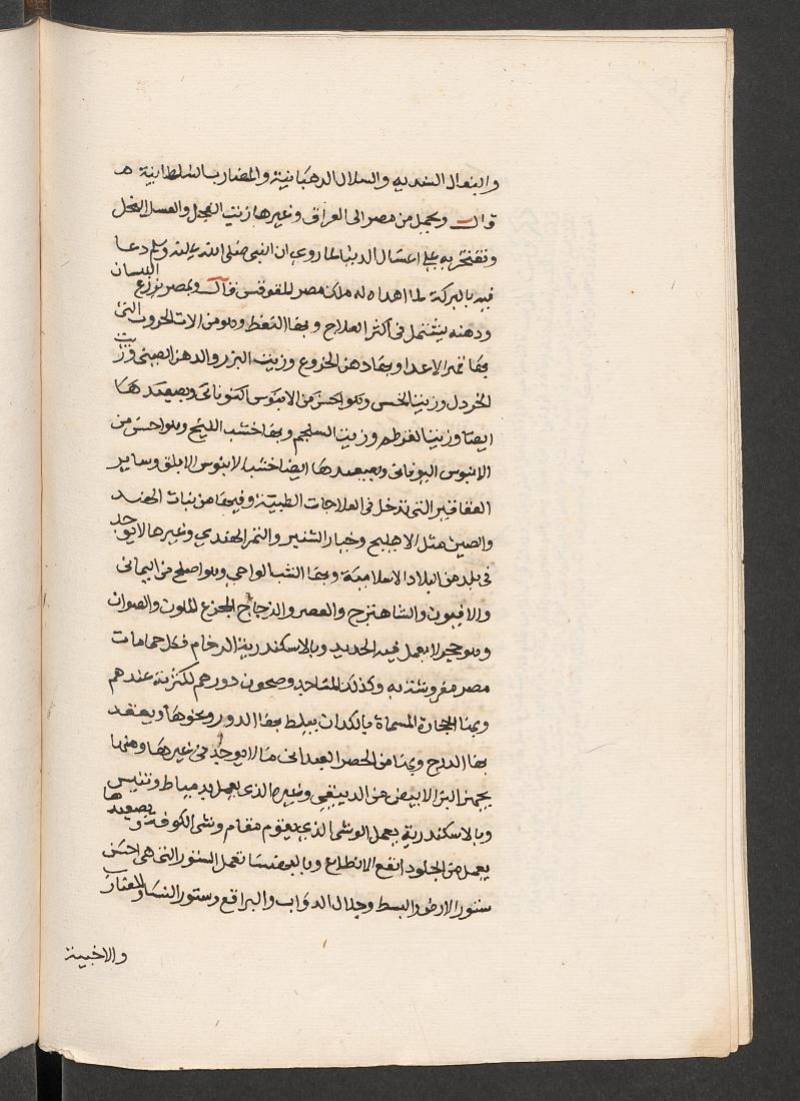 والنعال السنديه والسلال الدهبانية والمضارب السلطانية ھ
قال ويحمل من مصر الى العراق وغيرها زيت الفجل والعسل النحل
وتفتخر به على اعسال الدنيا لما روي ان النبي صلى الله عليه وسلم دعا
فيه بالبركة لما اهداه له ملك مصر المقوقس قال وبمصر يزرع البلسان
ودهنه يستعمل في اكثر العلاج وبها النفط وهو من الات الحروب التي
بها قهر الاعدا وبها دهن الخروع وزيت البزر والدهن الصيني وزيت
الخردل وزيت الخس وهو احسن من الابنوس اكنوناتى وبصعيدها
ايضا وزيت القرطم وزيت السلجم وبها خشب اللبخ وهو احسن من
الابنوس اليوناني وبصعيدها ايضا خشب الابنوس الابلق وساير
العقاقير التي تدخل في العلاجات الطبية وفيها من نبات الهند
والصين مثل الاهليلج وخيار الشنبر والتمر الهندي وغيرها لا يوجد
في بلد من البلاد الاسلامية وبها الشب الواحي وهو اصلح من اليماني
والافيون والشاهترج والعصر والزجاج المجزع الملون والصوان
وهو حجر لا يعمل فيه الحديد وبالاسكندرية الرخام فكل حمامات
مصر مفروشة به وكذلك المشاجد وصحون دورهم لكثرته عندهم
وبها الحجارة المسماة بالكدان يبلط بها الدور ونحوها ويعقد
بها الدرج وبها من الحصر العبداني ما لا يوجد في غيرها ومنها
يجهز البز الابيض من الدبيقي وغيره الذي يعمل بدمياط وتنيس
وبالاسكندرية يعمل الوشى الذي يقوم مقام وشى الكوفة وبصعيدها
يعمل من الجلود انفع الانطاع وبالبهنسا تعمل الستور التي هي احسن
ستور الارض والبسط وجلال الدواب والبراقع وستور النسا والمضارب
والاخبية